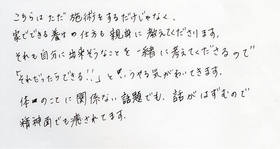 こちらはただ施術をするだけじゃなく、
家でできる養生の仕方も親身に教えてくださります。
それも自分に出来そうなことを一緒に考えてくださるので
「それだったらできる!!」という やる気がわいてきます。
体のことに関係ない話題でも、話がはずむので
精神面でも癒されてます。